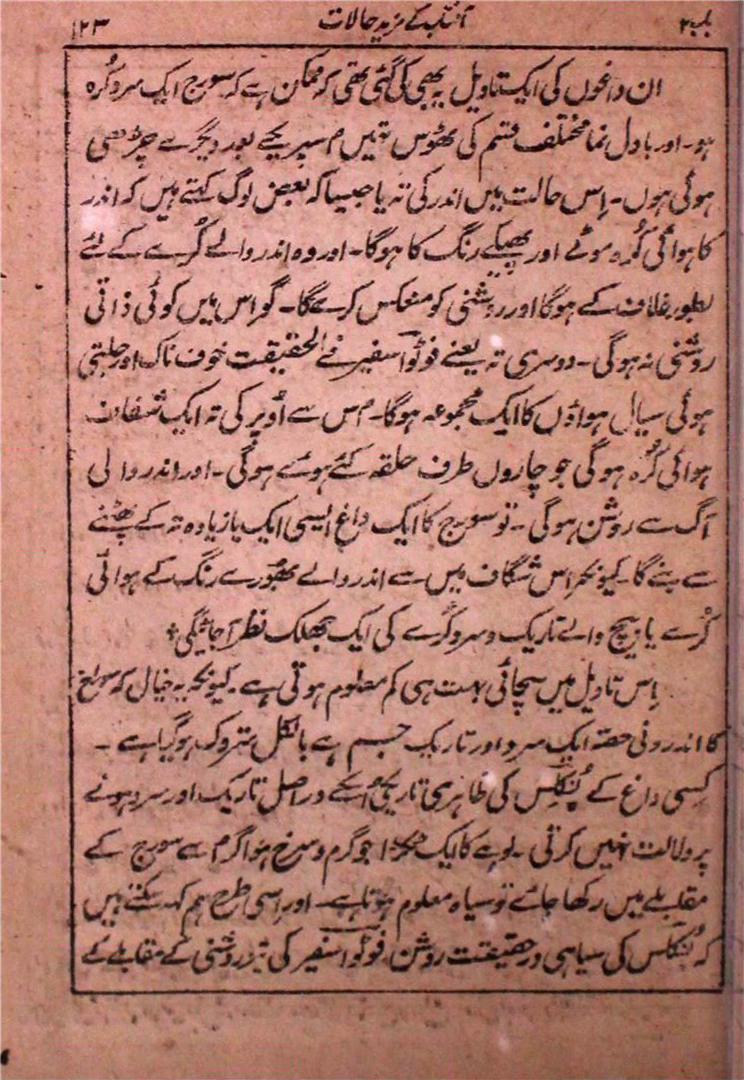 باب ۲ آفتاب کے مزید حالات ۱۲۳
ان داغوں کی ایک تاویل یہ بھی کی گئی تھی کہ ممکن ہے کہ سورج ایک سرد کُرہ
ہو۔ اور بادل نما مختلف قسم کی ٹھوس تہیں اس پر یکے بعد دیگرے چڑھی
ہوئی ہوں۔ اِس حالت میں اندر کی تہ یا جیسا کہ بعض لوگ کہتے ہیں کہ اندر
کا ہوائی کُرہ موٹے اور پھیکے رنگ کا ہوگا۔ اور وہ اندر والے کُرے کے لئے
بطور غلاف کے ہوگا اور روشنی کو منعکس کرے گا۔ گو اس میں کوئی ذاتی
روشنی نہ ہوگی۔ دوسری تہ یعنے فوٹو اسفیر فے الحقیقت خوف ناک اور جلتی
ہوئی سیال ہواؤں کا ایک مجموعہ ہوگا۔ اُس سے اُوپر کی تہ ایک شفاف
ہوائی کُرہ ہوگی جو چاروں طرف حلقہ کئے ہوئے ہوگی۔ اور اندر والی
آگ سے روشن ہوگی۔ تو سورج کا ایک داغ ایسی ایک یا زیادہ تہ کے پھٹنے
سے بنے گا۔ کیونکہ اس شگاف میں سے اندر والے بھورے رنگ کے ہوائی
کُرے یا بیچ والے تاریک و سرد کُرے کی ایک جھلک نظر آجائیگی ٭
اِس تاویل میں سچائی بہت ہی کم معلوم ہوتی ہے۔ کیونکہ یہ خیال کہ سورج
کا اندرونی حصہ ایک سرد اور تاریک جسم ہے بالکل متروک ہوگیا ہے۔
کِسی داغ کے نُیُکلِس کی ظاہری تاریکی اُسکے در اصل تاریک اور سرد ہونے
پر دلالت نہیں کرتی۔ لوہے کا ایک ٹکڑا جو گرم و سرخ ہو اگر اُسے سورج کے
مقابلے میں رکھا جائے تو سیاہ معلوم ہوتا ہے۔ اور اِسی طرح ہم کہہ سکتے ہیں
کہ نُیُکلِس کی سیاہی در حقیقت روشن فوٹو اسفیر کی تیز روشنی کے مقابلے کے